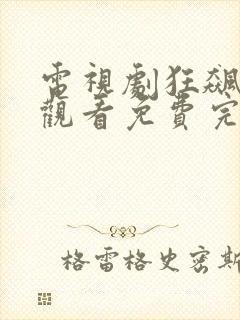 電視劇狂飆
觀看免費完
格雷格史密斯